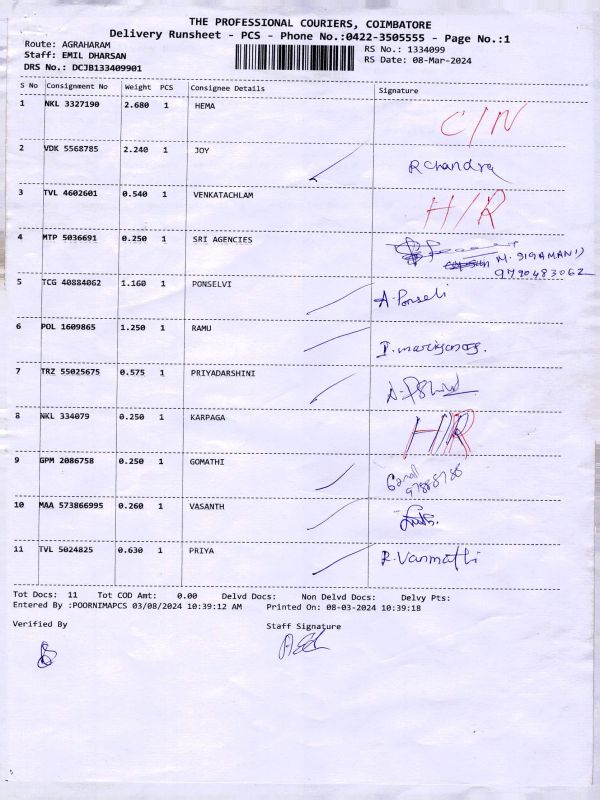 THE PROFESSIONAL COURIERS, COIMBATORE
Delivery Runsheet - PCS - Phone No.:0422-3505555 - Page No.:1
Route: AGRAHARAM
Staff: EMIL DHARSAN
DRS No.: DCJB133409901
RS No.: 1334099
RS Date: 08-Mar-2024
S No Consignment No Weight PCS Consignee Details Signature
1 NKL 3327190 2.680 1 HEMA C/N
2 VDK 5568785 2.240 1 JOY R Chandra
3 TVL 4602601 0.540 1 VENKATACHLAM H/R
4 MTP 5036691 0.250 1 SRI AGENCIES M. SIGAMANI
9790483062
5 TCG 40884062 1.160 1 PONSELVI A. Ponseli
6 POL 1609865 1.250 1 RAMU
7 TRZ 55025675 0.575 1 PRIYADARSHINI
8 NKL 334079 0.250 1 KARPAGA H/R
9 GPM 2086758 0.250 1 GOMATHI
10 MAA 573866995 0.260 1 VASANTH
11 TVL 5024825 0.630 1 PRIYA R. Vanmathi
Tot Docs: 11 Tot COD Amt: 0.00 Delvd Docs: Non Delvd Docs: Delvy Pts:
Entered By :POORNIMAPCS 03/08/2024 10:39:12 AM Printed On: 08-03-2024 10:39:18
Verified By Staff Signature